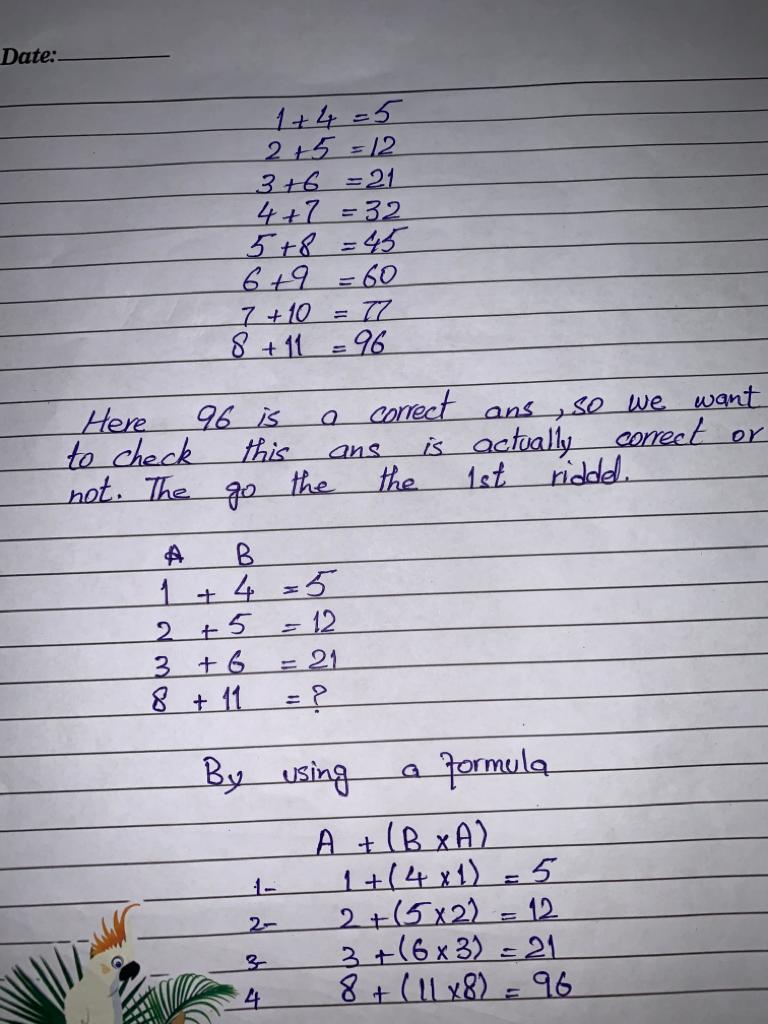 Date:
1 + 4 = 5
2 + 5 = 12
3 + 6 = 21
4 + 7 = 32
5 + 8 = 45
6 + 9 = 60
7 + 10 = 77
8 + 11 = 96
Here 96 is a correct ans, so we want
to check this ans is actually correct or
not. The go the the 1st riddel.
A B
1 + 4 = 5
2 + 5 = 12
3 + 6 = 21
8 + 11 = ?
By using a formula
A + (B x A)
1- 1 + (4 x 1) = 5
2- 2 + (5 x 2) = 12
3- 3 + (6 x 3) = 21
4 8 + (11 x 8) = 96